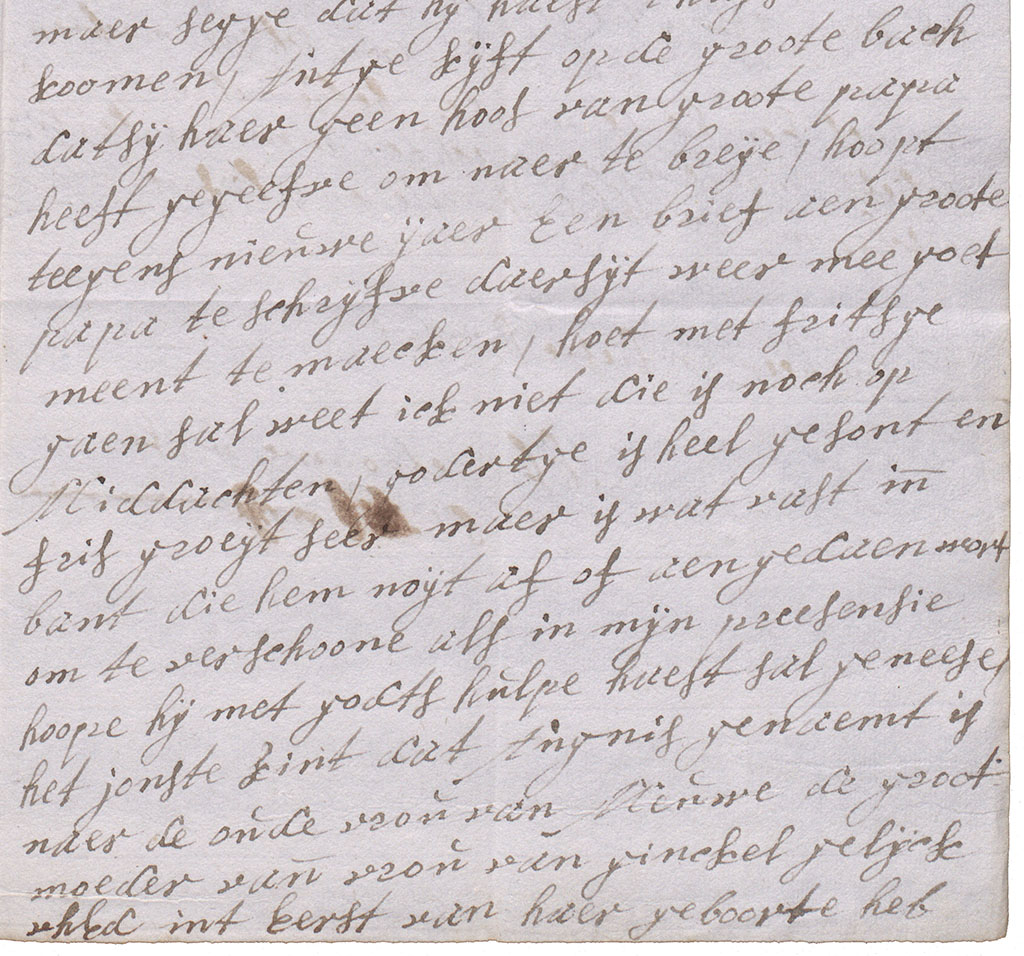 maer segge dat hy haest
koomen, tntge kÿft op de groote bach
datsÿ haer geen hoos van groote papa
heeft gegeefve om naer te breÿe, hoopt
teegens nieuwe ÿaer Een brief aen groote
papa te schrÿfve daer sÿt weer mee goet
meent te maecken, hoet met fritsge
gaen sal weet ick niet die is noch op
Middachten, godertge is heel gesont en
fris groeÿt seer maer is wat vast in̄
bant die hem noÿt af of aengedaen wort
om te verschoone als in mÿn preesensie
hoope hÿ met godts hulpe haest sal geneese,
het jonste kint dat genaemt is
naer de oude vrou van Nieuwe de groot
moeder van̄ vrou van ginckel gelÿck
uhEd int Eerst van haer geboorte heb